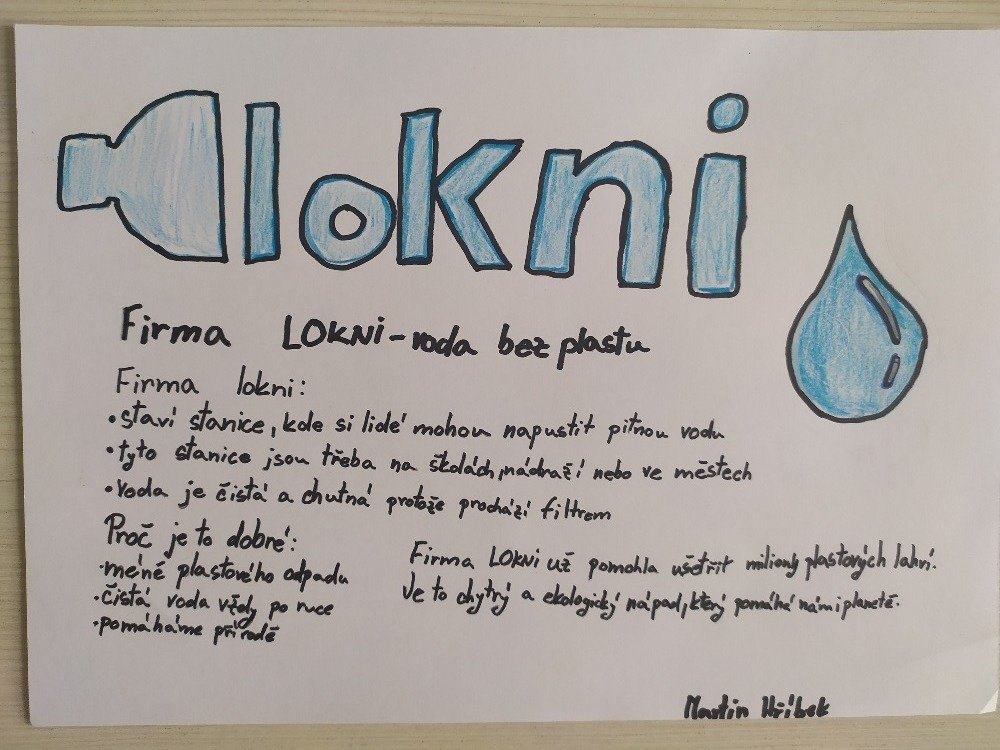 lokni
Firma LOKNI-voda bez plastu
Firma lokni:
•staví stanice, kde si lidé mohou napustit pitnou vodu
•tyto stanice jsou třeba na školách, nádraží nebo ve městech
•voda je čistá a chutná protože prochází filtrem
Proč je to dobré:
•méně plastového odpadu
•čistá voda vždy po ruce
•pomáháme přírodě
Firma LOKNI už pomohla ušetřit miliony plastových lahví.
Je to chytrý a ekologický nápad, který pomáhá nám i planetě.
Martin Hříbek